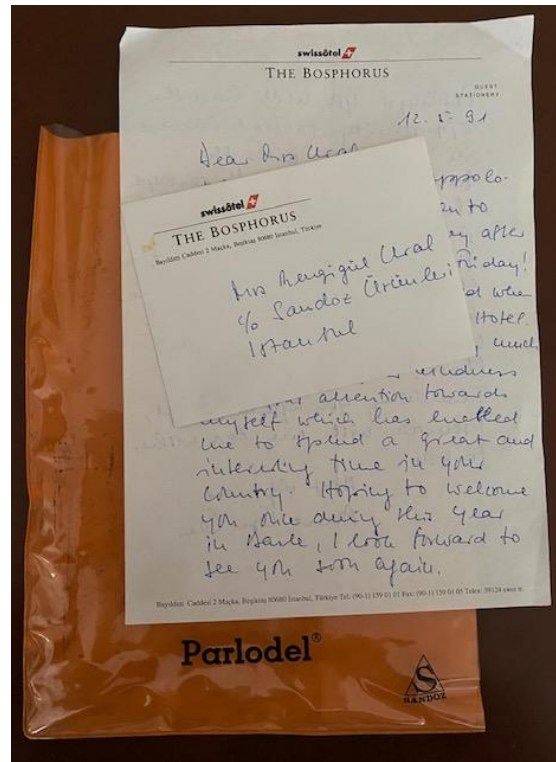 swissôtel
THE BOSPHORUS
GUEST
STATIONERY
12. 5. 91
Dear Mrs Ural
appolo-
to
after
Friday!
when
Hotel.
much
kindness
attention towards
myself which has enabled
me to spend a great and
interesting time in your
country. Hoping to welcome
you once during this year
in Basle, I look forward to
see you soon again.
Bayıldım Caddesi 2 Maçka, Beşiktaş 80680 İstanbul, Türkiye Tel: (90-1) 159 01 01 Fax: (90-1) 159 01 05 Telex:
swissôtel
THE BOSPHORUS
Bayıldım Caddesi 2 Maçka, Beşiktaş 80680 İstanbul, Türkiye
Mrs Rengigül Ural
c/o Sandoz Ürünleri
Istanbul
Parlodel®
S
SANDOZ